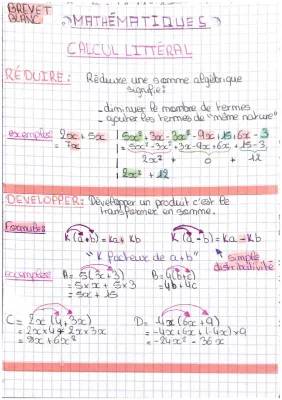 BREVET BLANC
MATHÉMATIQUES
CALCUL LITTÉRAL
RÉDUIRE: Réduire une somme algébrique
signifie:
- diminuer le nombre de termes
- ajouter les termes de "même nature"
exemples: 2x + 5x
= 7x
5x² + 3x - 3x² - 9x + 15 + 6x - 3
= 5x² - 3x² + 3x - 9x + 6x + 15 - 3
2x² + 0 + 12
2x² + 12
DEVELOPPER: Développer un produit c'est le
transformer en somme.
Formules
K(a+b) = Ka + Kb K(a-b) = Ka - Kb
"K facteur de a+b"
simple
distributivité
Exemples A = 5(x + 3) B = 4(b + c)
= 5 x x + 5 x 3 = 4b + 4c
= 5x + 15
C = 2x(4 + 3x) D = -4x(6x + 9)
= 2x x 4 + 2x x 3x = -4x x 6x + (-4x) x 9
= 8x + 6x² = -24x² - 36x